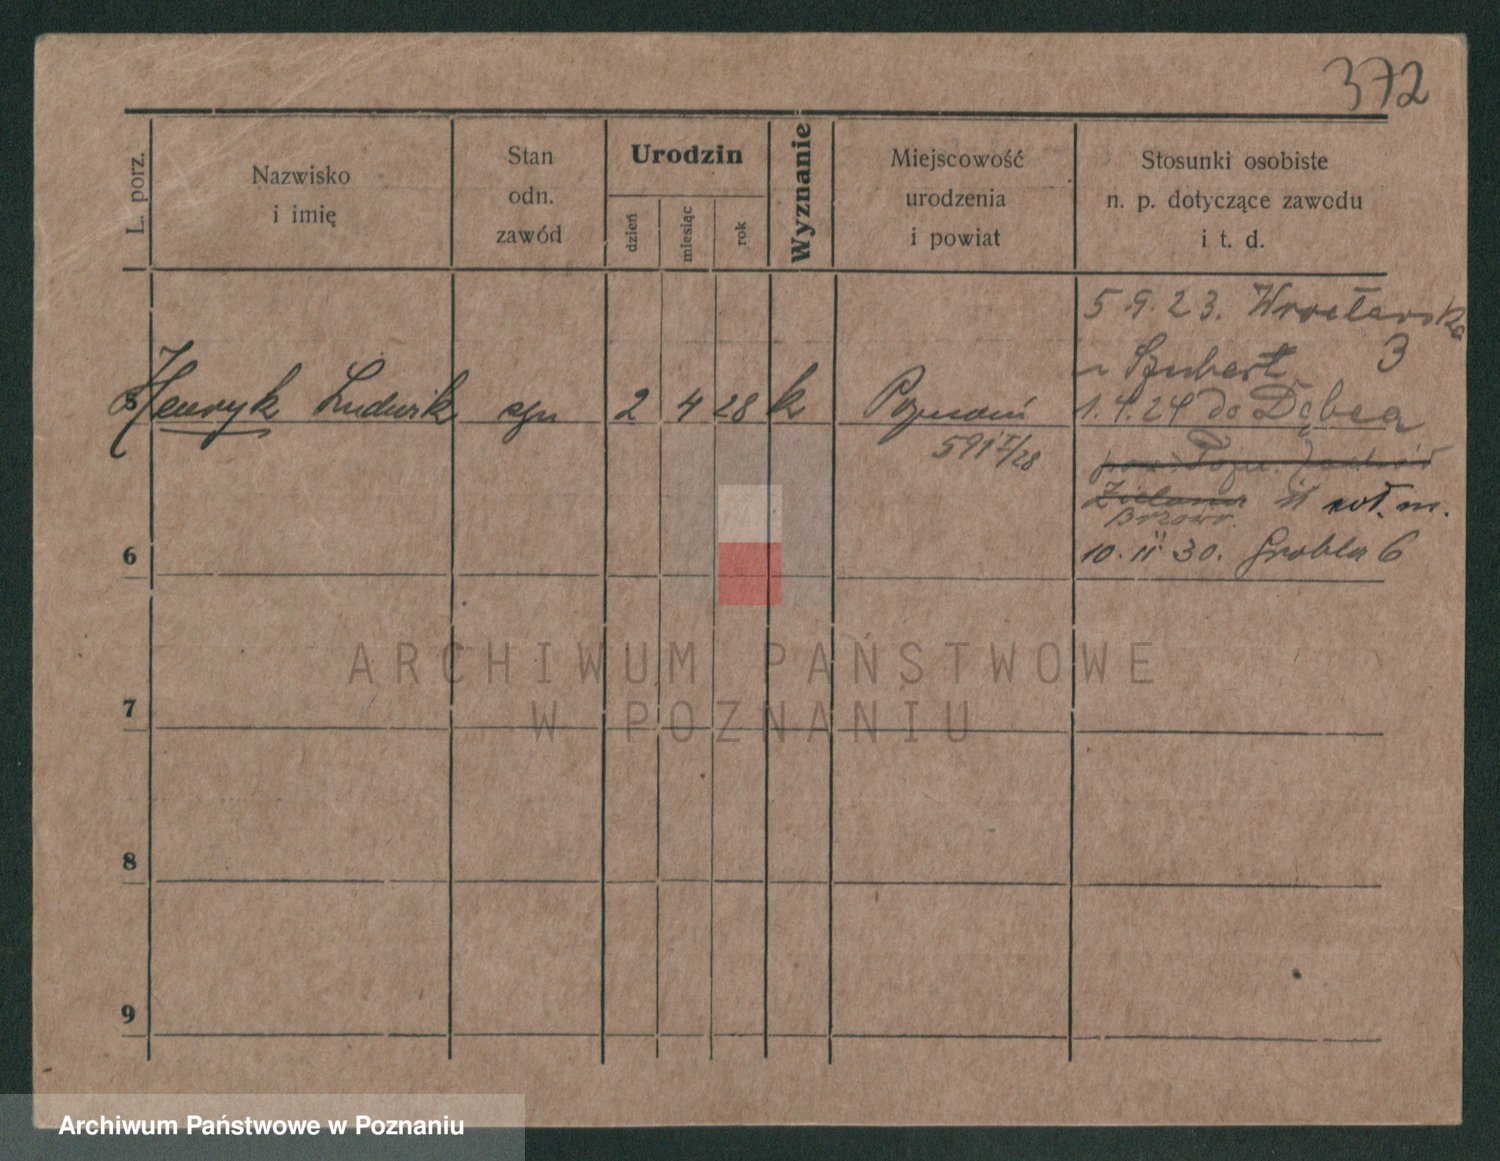 372
L. porz.
Nazwisko
i imię
Stan
odn.
zawód
Urodzin
dzień
miesiąc
rok
Wyznanie
Miejscowość
urodzenia
i powiat
Stosunki osobiste
n. p. dotyczące zawodu
i t. d.
5.9.23. Wrocławska
u Szubert 3
5 Henryk Ludwik syn 2 4 28 k Poznań 1.4.24 do Dębca
591 I/28
Zielona
10.11.30. Grobla 6
6
7
8
9
ARCHIWUM PAŃSTWOWE
W POZNANIU
Archiwum Państwowe w Poznaniu